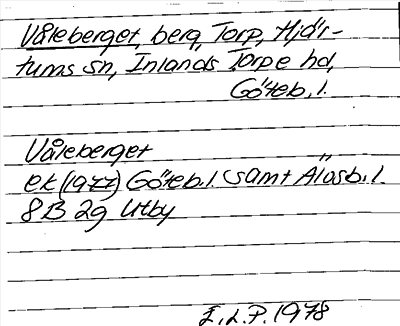 Våleberget, berg, Torp, Hjär-
tums sn, Inlands Torpe hd,
Göteb. l.
Våleberget
ek (1977) Göteb. l. samt Älvsb. l.
8B 2g Utby
I.L.P. 1978